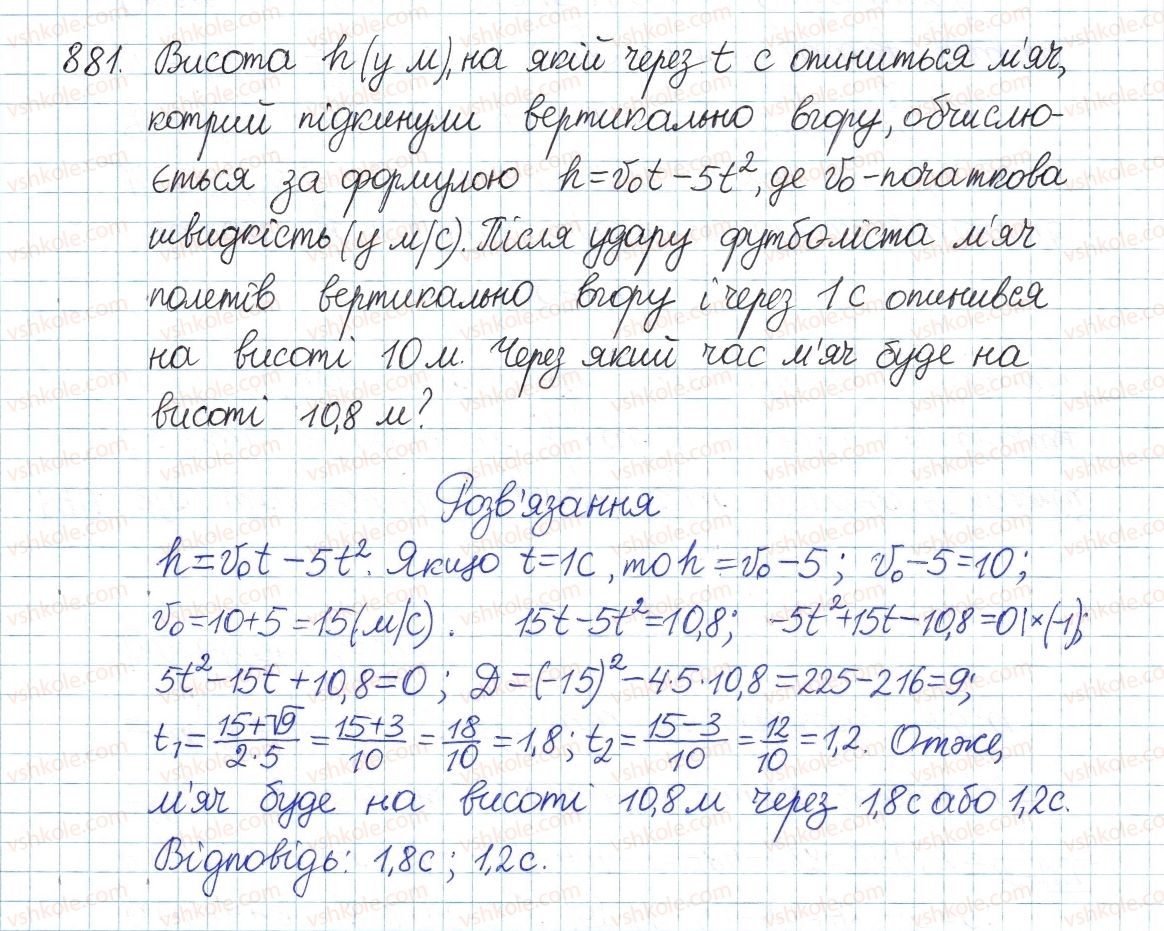 881. Висота h (у м), на якій через t с опиниться м'яч,
котрий підкинули вертикально вгору, обчислю-
ється за формулою h=v₀t-5t², де v₀-початкова
швидкість (у м/с). Після удару футболіста м'яч
полетів вертикально вгору і через 1 с опинився
на висоті 10 м. Через який час м'яч буде на
висоті 10,8 м?
Розв'язання
h=v₀t-5t². Якщо t=1с, то h=v₀-5; v₀-5=10;
v₀=10+5=15(м/с). 15t-5t²=10,8; -5t²+15t-10,8=0|×(-1);
5t²-15t+10,8=0; Д=(-15)²-4·5·10,8=225-216=9;
t₁=(15+√9)/(2·5)=(15+3)/10=18/10=1,8; t₂=(15-3)/10=12/10=1,2. Отже,
м'яч буде на висоті 10,8 м через 1,8с або 1,2с.
Відповідь: 1,8с; 1,2с.